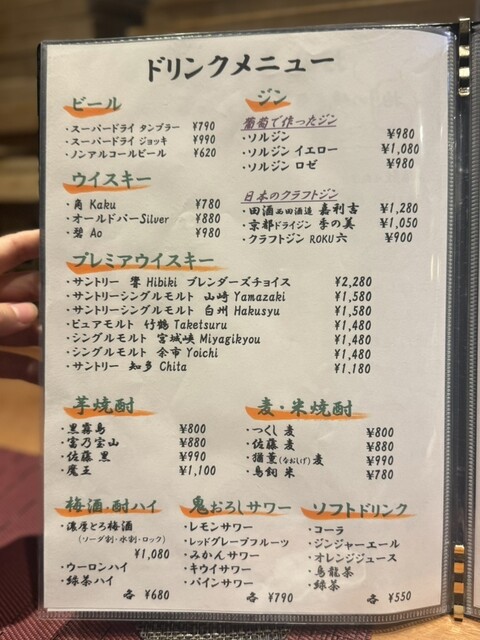 ドリンクメニュー
ビール
・スーパードライ タンブラー ¥790
・スーパードライ ジョッキ ¥990
・ノンアルコールビール ¥620
ウイスキー
・角 Kaku ¥780
・オールドパーSilver ¥880
・碧 Ao ¥980
ジン
葡萄で作ったジン
・ソルジン ¥980
・ソルジン イエロー ¥1,080
・ソルジン ロゼ ¥980
日本のクラフトジン
・田酒 西田酒造 嘉利吉 ¥1,280
・京都ドライジン 季の美 ¥1,050
・クラフトジン ROKU 六 ¥900
プレミアウイスキー
・サントリー 響 Hibiki ブレンダーズチョイス ¥2,280
・サントリーシングルモルト 山崎 Yamazaki ¥1,580
・サントリーシングルモルト 白州 Hakusyu ¥1,580
・ピュアモルト 竹鶴 Taketsuru ¥1,480
・シングルモルト 宮城峡 Miyagikyou ¥1,480
・シングルモルト 余市 Yoichi ¥1,480
・サントリー 知多 Chita ¥1,180
芋焼酎
・黒霧島 ¥800
・富乃宝山 ¥880
・佐藤 黒 ¥990
・魔王 ¥1,100
麦・米焼酎
・つくし 麦 ¥800
・佐藤 麦 ¥880
・猶薫(なおしげ)麦 ¥990
・鳥飼 米 ¥780
梅酒・酎ハイ
・濃厚とろ梅酒
(ソーダ割・水割・ロック)
¥1,080
・ウーロンハイ
・緑茶ハイ
各 ¥680
鬼おろしサワー
・レモンサワー
・レッドグレープフルーツ
・みかんサワー
・キウイサワー
・パインサワー
各 ¥790
ソフトドリンク
・コーラ
・ジンジャーエール
・オレンジジュース
・烏龍茶
・緑茶
各 ¥550